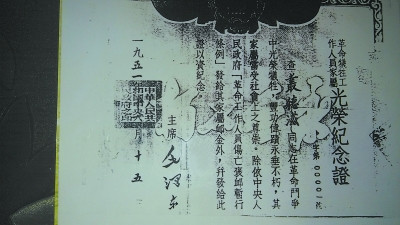 革命犧牲工
作人員家屬
光榮紀念證
字第0000一號
查叢德滋同志在革命鬥爭
中光榮犧牲,豐功偉績永垂不朽,其
家屬當受社會上之尊崇。除依中央人
民政府「革命工作人員傷亡褒卹暫行
條例」發給其家屬卹金外,并發給此
證以資紀念。
主席 毛澤東
一九五一 十五